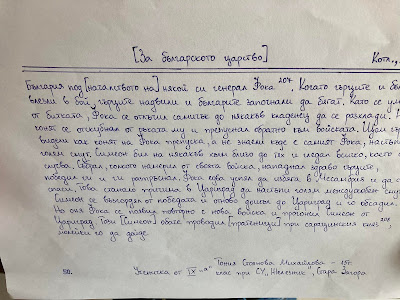 [За българското царство]
Котл.,
България под [началството на] някой си генерал Фока 207. Когато гърците и бъ
влезли в бой, гърците надвили и българите започнали да бягат. Като се ум
от битката, Фока се отбил самичък до някакъв кладенец да се разхлади. Н
конят се отскубнал от ръката му и препуснал обратно към войската. Щом гърц
видели как конят на Фока препуска, а не знаели къде е самият Фока, настън
голям смут. Симеон бил на някакъв хълм близо до тях и гледал всичко, което с
Събрал, толкоз намерил от своята войска, нападнал здраво гърците,
победил ги и ги разпръснал. Фока едва успял да избяга в Месемврия и да с
спаси. Това станало причина в Цариград да настъпи голям междуособен смут
Симеон се възгордял от победата и отново дошъл до Цариград и го обсадил.
Но оня Фока се появил повторно с нова войска и прогонил Симеон от
Цариград. Този [Симеон] обаче проводил [пратеници] при сарацинския княз 208,
молейки го да дойде.
50.
Тония Стоянова Михайлова - 15г.
Ученичка от IX-"а" клас при СУ "Железник", Стара Загора